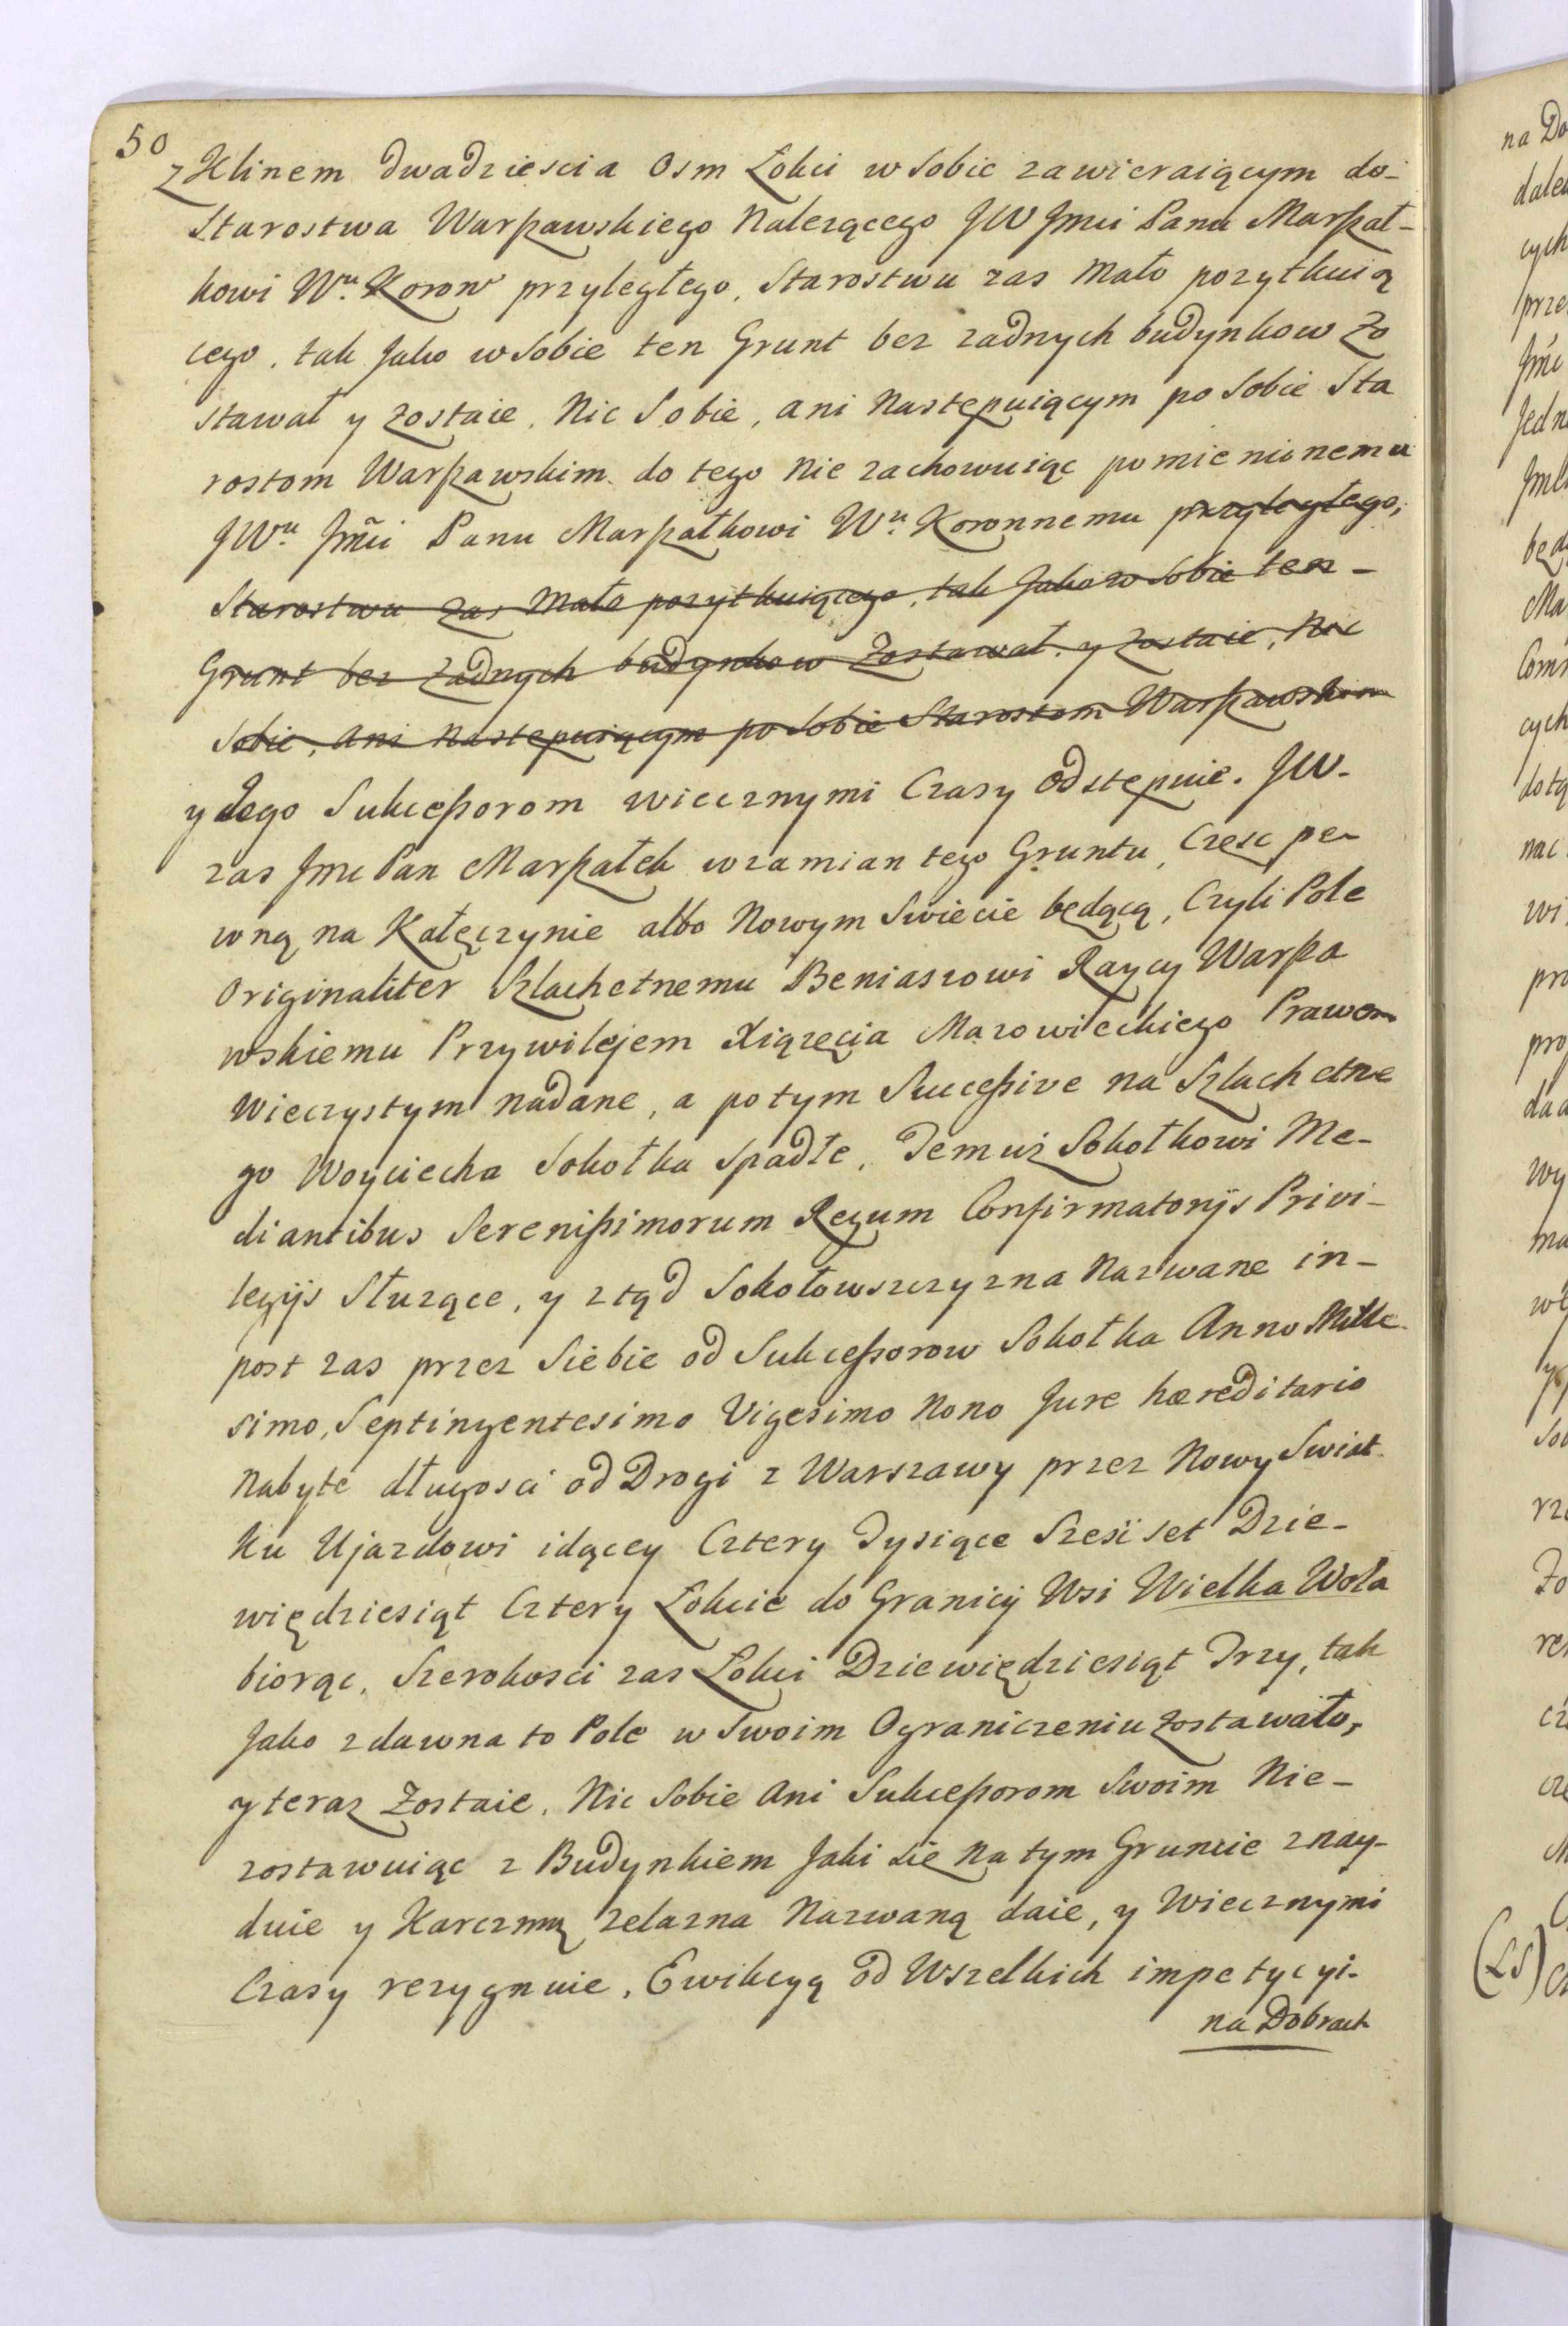 50
z Klinem dwadziescia Osm Łokci w sobie zawieraiącym do-
Starostwa Warszawskiego Nalezącego JW Jmći Panu Marszał-
kowi Wu. Koron przyległego, Starostwu zas Mało pozytkuią
cego, tak Jako w Sobie ten Grunt bez zadnych budynkow Zo
stawał y zostaie, Nic Sobie, ani Nastepuiącym po Sobie Sta
rostom Warszawskim do tego nie zachowuiąc pomienionemu
JWu Jmći Panu Marszałkowi Wu. Koronnemu przyległego,
Starostwu zas Mało pozytkuiącego, tak Jako w Sobie ten-
Grunt bez zadnych budynkow Zostawał y zostaie, Nic
Sobie, ani Nastepuiącym po Sobie Starostom Warszawskim
y Jego Sukcessorom wiecznymi Czasy odstepuie. JW-
zas Jmc Pan Marszałek w zamian tego Gruntu, Czesc pe-
wną na Kałęczynie albo Nowym Swiecie będącą, Czyli Pole
Originaliter Szlachetnemu Beniaszowi Raycy Warsza
wskiemu Przywilejem Xiązęcia Mazowieckiego Prawem
Wieczystym nadane, a potym Successive na Szlachetne
go Woyciecha Sokołka Spadłe, Temuż Sokołkowi Me-
diantibus Serenissimorum Regum Confirmatorijs Privi-
legijs Służące, y ztąd Sokołowszczyzna Nazwane in-
post zas przez Siebie od Sukcessorow Sokołka Anno Mille-
simo, Septingentesimo Vigesimo Nono Jure hæreditario
Nabyte długosci od Drogi z Warszawy przez Nowy Swiat
Ku Ujazdowi idącey Cztery Tysiące Szesć set Dzie-
więdziesiąt Cztery Łokcie do Granicy Wsi Wielka Wola
biorąc, Szerokosci zas Łokci Dziewiędziesiąt Trzy, tak
Jako zdawna to Pole w Swoim Ograniczeniu zostawało,
y teraz Zostaie, Nic Sobie Ani Sukcessorom Swoim Nie-
zostawuiąc z Budynkiem Jaki sie Na tym Gruncie znay-
duie y Karczmą zelazna Nazwaną daie, y Wiecznymi
Czasy rezygnuie, Ewikcyą od Wszelkich impetycyi-
na Dobrach
na Do
dale
cych
prze
Jmć
Jedn
będ
Ma
cych
doty
nac
wi
pro
pro
wy
ma
(LS)